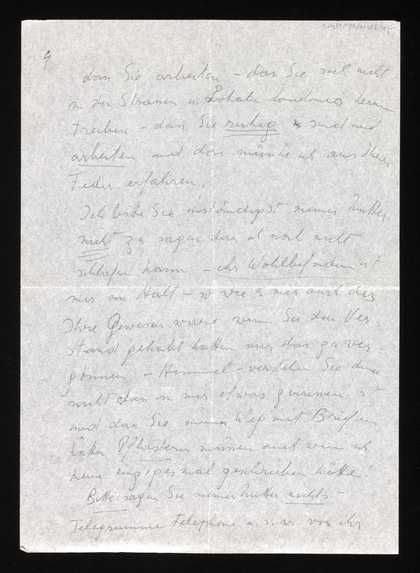 9
dass Sie arbeiten – dass Sie sich nicht
in den Strassen u Lokale Londons herum
treiben – dass Sie ruhig sind und
arbeiten und das möchte ich aus Ihrer
Feder erfahren.
Ich bitte Sie inständigst meiner Mutter
nicht zu sagen dass ich noch nicht
schlafen kann – ihr Wohlbefinden ist
mir ein Halt – wie es mir auch das
Ihre gewesen wäre wenn Sie den Ver
stand gehabt hätten mir das zu ver-
gönnen – Himmel – verstehen Sie denn
nicht dass in mir etwas zerrissen ist
und dass Sie meinen Weg mit Briefen
hätten pflastern müssen auch wenn ich
kein einziges mal geschrieben hätte!
Bitte sagen Sie meiner Mutter nichts –
Telegramme Telephone von ihr